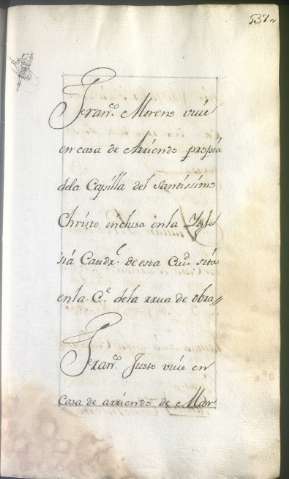 Fran.co Moreno vive
en casa de Ariendo propia
dela Capilla del Santissimo
Christo inclusa en la Igle
sia de esta Ciu.d sita
en la C.e dela
Fran.co Justo vive en
Casa de arriendo de Mar